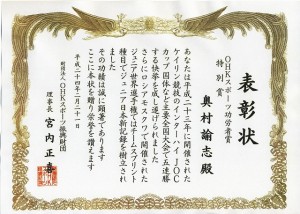 表彰状
OHKスポーツ功労者賞
特別賞
奥村諭志殿
あなたは平成二十三年に開催された
ケイリン競技のインターハイJOC
カップ国体など主要全国大会で五連勝
する快挙を成し遂げられました
さらにロシアモスクワで開催された
ジュニア世界選手権ではチームスプリント
種目でジュニア日本新記録を樹立され
ました
その功績は誠に顕著であります
ここに本状を贈り栄誉を讃えます
平成二十四年二月二十一日
財団法人OHKスポーツ振興財団
理事長 宮内正喜